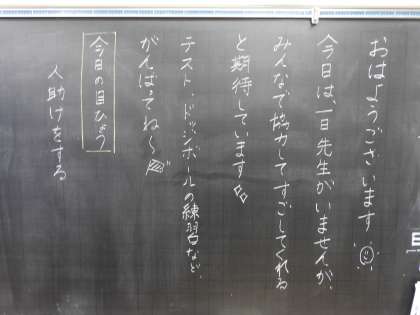 おはようございます
今日は、一日先生がいませんが、
みんなで協力してすごしてくれる
と期待しています
テスト、ドッジボールの練習など、
がんばってね〜
今日の目ひょう
人助けをする